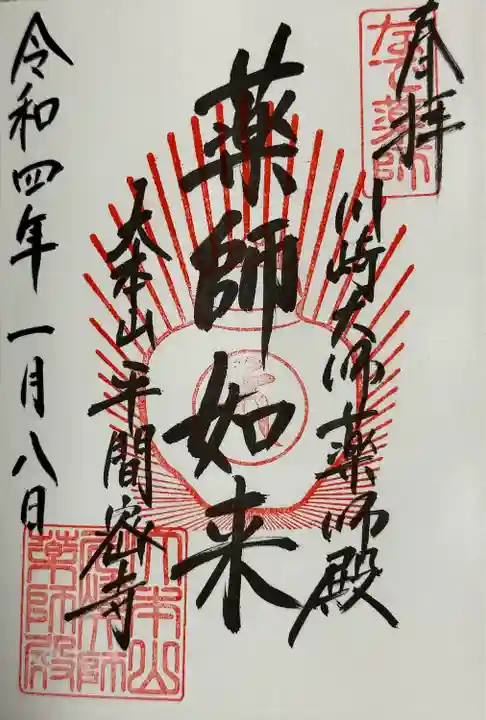 奉拝
川崎大師薬師殿
薬師如来
大本山平間密寺
令和四年一月八日
大本山
川崎大師
薬師殿